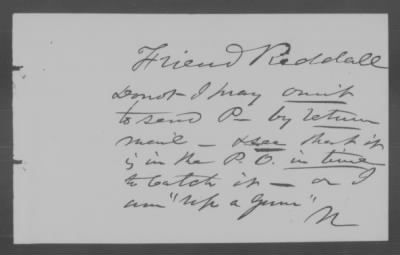 Friend Reddall
Do not I pray omit
to send P— by return
mail — & see that it
is in the P. O. in time
to catch it — or I
am "up a gum"
N